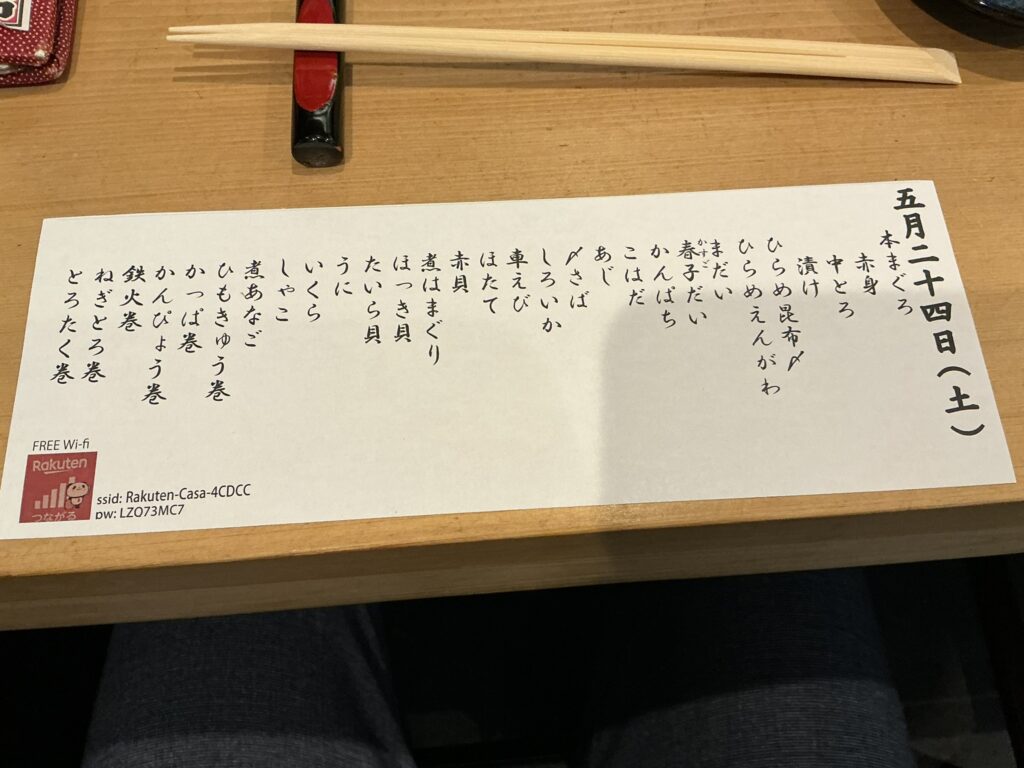 五月二十四日(土)
本まぐろ
赤身
中とろ
漬け
ひらめ昆布〆
ひらめえんがわ
まだい
春子だい
かすご
かんぱち
こはだ
あじ
〆さば
しろいか
車えび
ほたて
赤貝
煮はまぐり
ほっき貝
たいら貝
うに
いくら
しゃこ
煮あなご
ひもきゅう巻
かっぱ巻
かんぴょう巻
鉄火巻
ねぎとろ巻
とろたく巻
FREE Wi-fi
Rakuten
つながる
ssid: Rakuten-Casa-4CDCC
pw: LZO73MC7